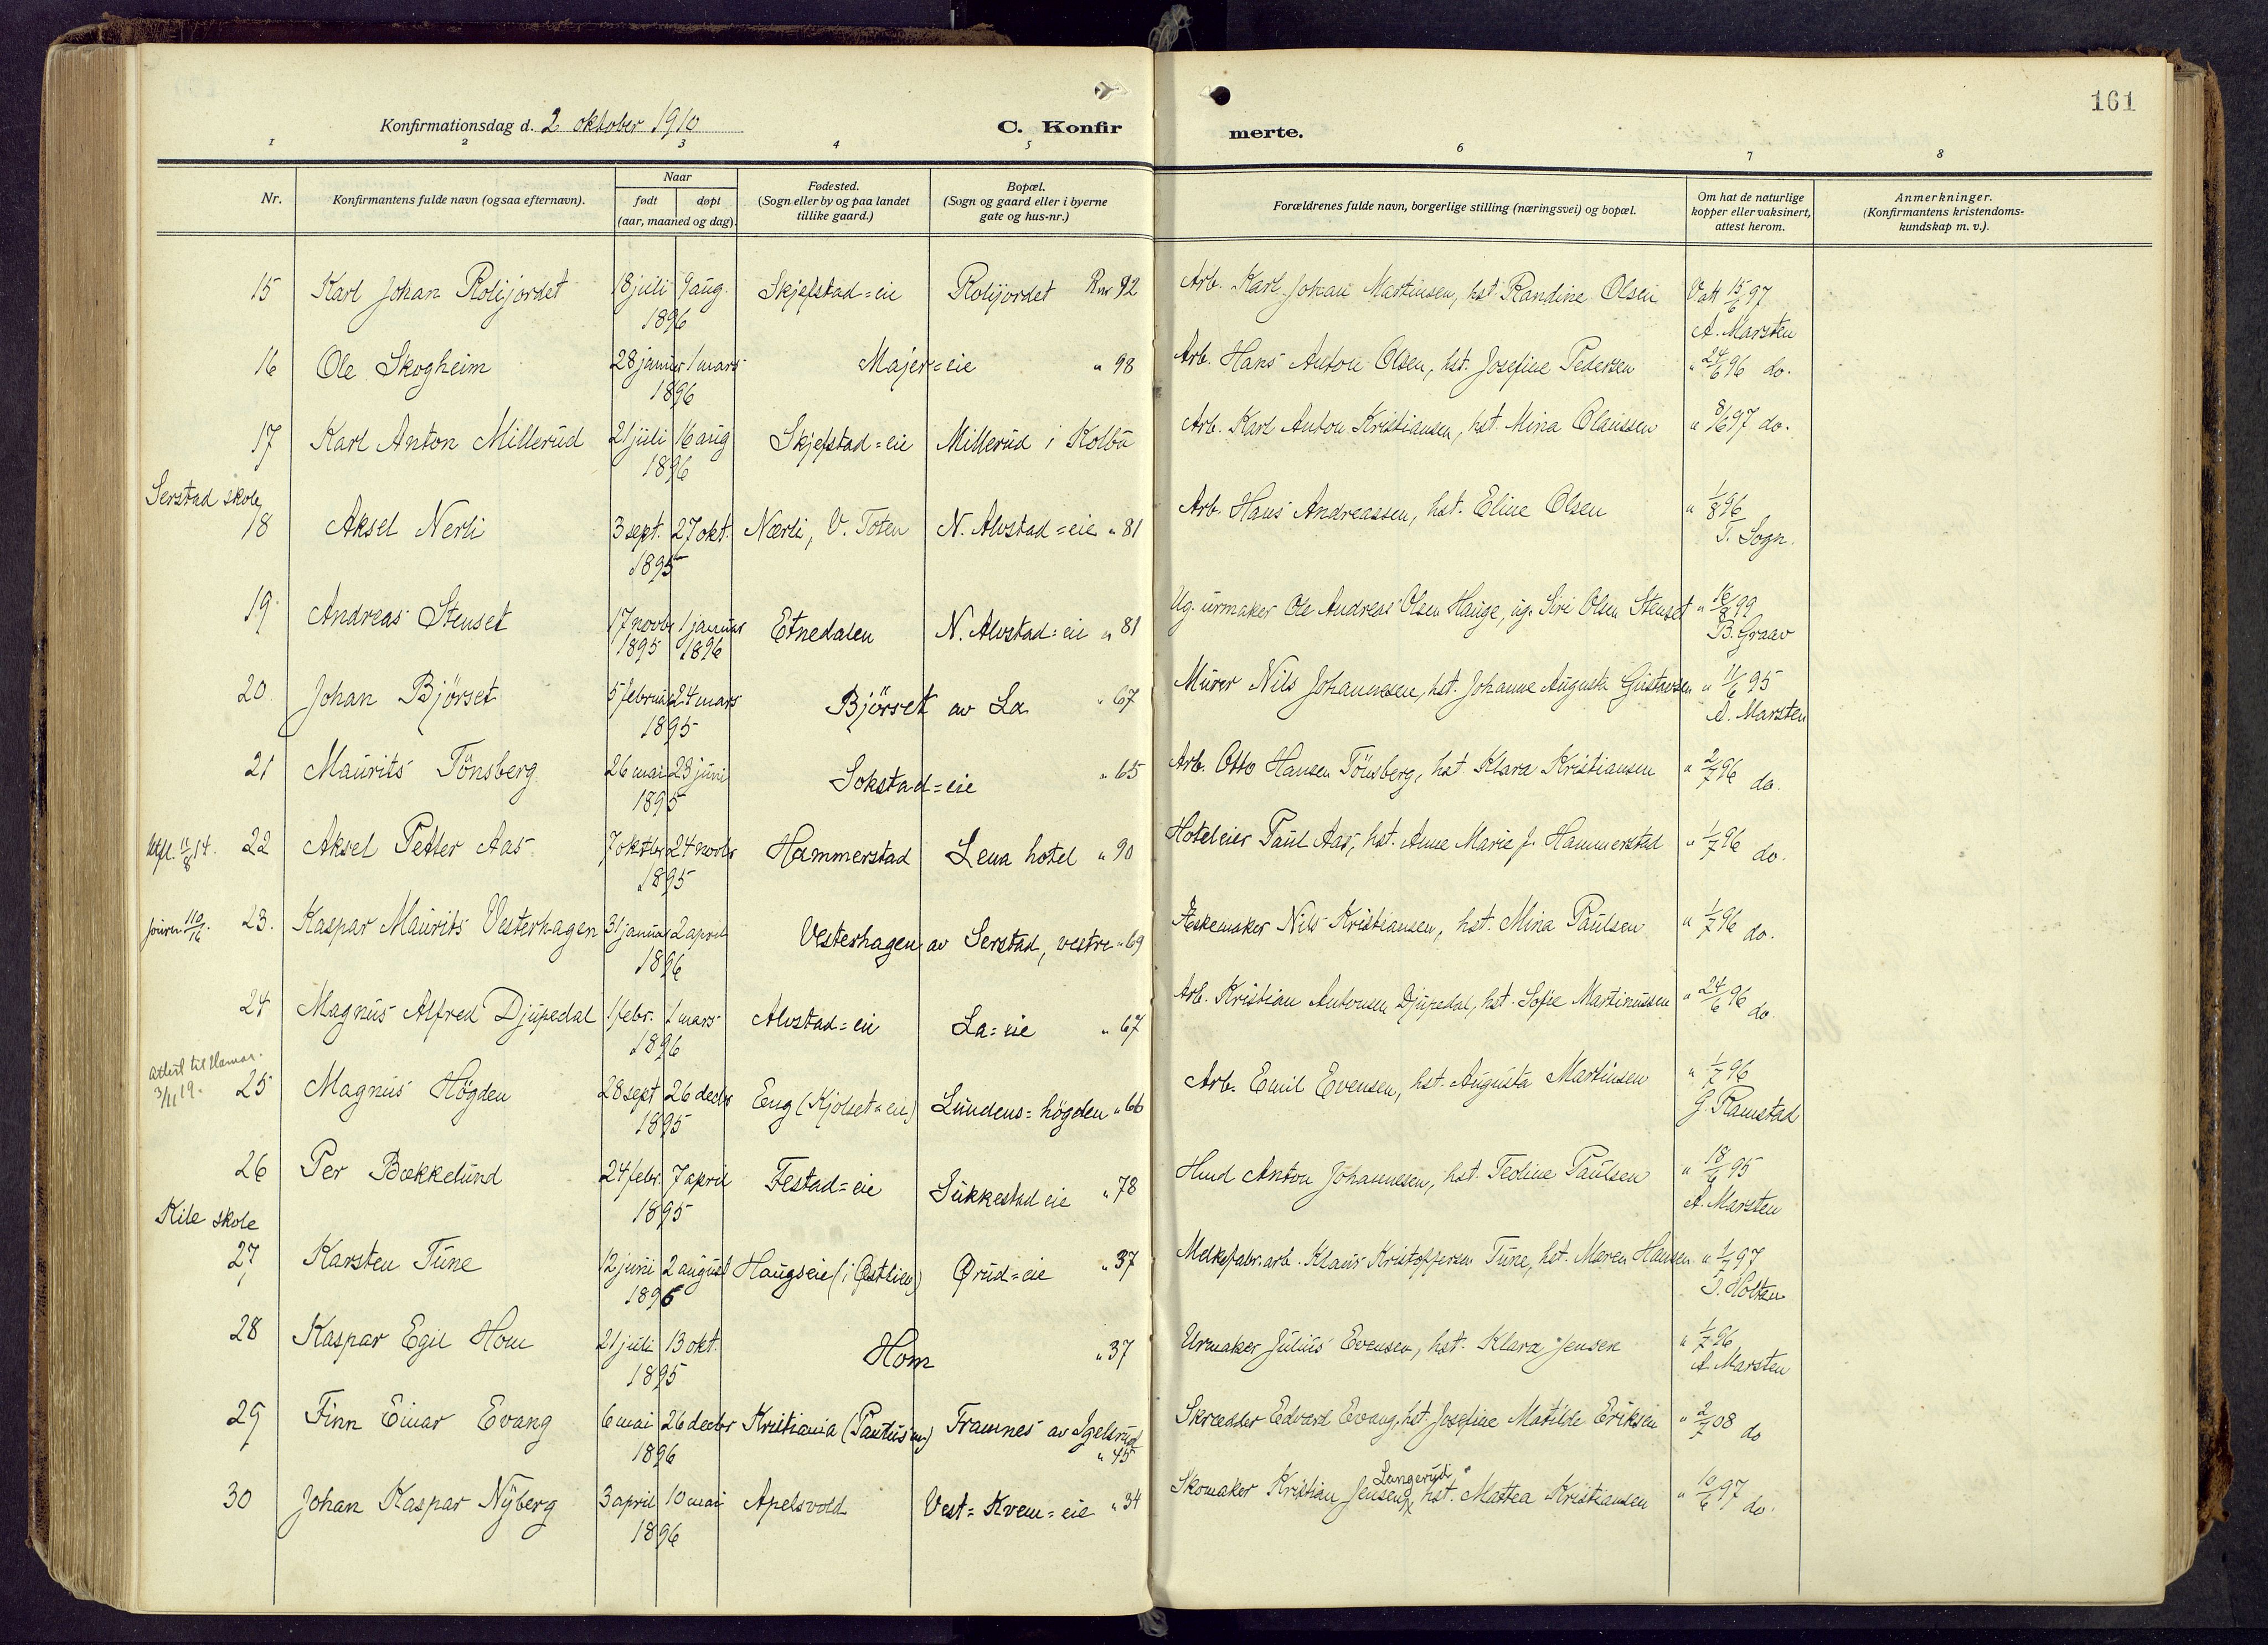 161
Konfirmationsdag d. 2 oktober 1910
C. Konfirmerte.
1 2 3 4 5 6 7 8
Nr.
Konfirmantens fulde navn (ogsaa efternavn).
Naar
født døpt
(aar, maaned og dag).
Fødested.
(Sogn eller by og paa landet
tillike gaard.)
Bopæl.
(Sogn og gaard eller i byerne
gate og hus-nr.)
Forældrenes fulde navn, borgerlige stilling (næringsvei) og bopæl.
Om hat de naturlige
kopper eller vaksinert,
attest herom.
Anmerkninger.
(Konfirmantens kristendoms-
kundskap m. v.).
15 Karl Johan Rolijordet 18 juli 9 aug. Skjefstad=eie Rolijordet Rnr 92 Arb. Karl Johan Martinsen, hst. Randine Olsen Vatt 15/6 97
1896 A. Marsten
16 Ole Skogheim 28 januar 1 mars Majer=eie " 98 Arb. Hans Anton Olsen, hst. Josefine Pedersen " 24/6 96 do.
1896
17 Karl Anton Millerud 21 juli 16 aug Skjefstad=eie Millerud i Kolbu Arb. Karl Anton Kristiansen, hst. Mina Olaussen " 8/6 97 do.
1896
Serstad skole
18 Aksel Nerli 3 sept. 27 okt. Nærli, V. Toten N. Alvstad=eie " 81 Arb. Hans Andreassen, hst. Eline Olsen " 1/8 96
1895 T. Sogn.
19 Andreas Stenset 17 novbr 1 januar Etnedalen N. Alvstad=eie " 81 Ug. urmaker Ole Andreas Olsen Hauge, ug. Siri Olsen Stenset " 16/8 99
1895 1896 B. Graav
20. Johan Bjørset 5 februar 24 mars Bjørset av La " 67 Murer Nils Johannesen, hst. Johanne Augusta Gustavsen " 11/6 95
1895 A. Marsten
21 Maurits Tönsberg 26 mai 23 juni Sokstad=eie " 65 Arb. Otto Hansen Tönsberg, hst. Klara Kristiansen " 2/7 96 do.
1895
Utfl. 11/8 14. 22 Aksel Petter Aas 7 oktbr 24 novbr Hammerstad Lena hotel " 90 Hoteleier Paul Aas, hst. Anne Marie J. Hammerstad " 1/7 96 do.
1895
Journ. 110/16. 23. Kaspar Maurits Vesterhagen 31 januar 2 april Vesterhagen av Serstad, vestre " 69 Æskemaker Nils Kristiansen, hst. Mina Paulsen " 1/7 96 do.
1896
24 Magnus Alfred Djupedal 1 febr. 1 mars Alvstad=eie La=eie " 67 Arb. Kristian Antonsen Djupedal, hst. Sofie Martinussen " 24/6 96 do.
1896
Attest til Hamar.
3/11 19. 25 Magnus Högden 28 sept 26 decbr Eng (Kjölset=eie) Lundens=högden " 66 Arb. Emil Evensen, hst. Augusta Martinsen " 1/7 96
1895 G. Ramstad
26 Per Bækkelund 24 febr. 7 april Festad=eie Sukkestad eie " 78 Smed Anton Johannesen, hst. Tedine Paulsen " 18/6 95
1895 A. Marsten
Kile skole
27 Karsten Tune 12 juni 2 august Haugseie (i Østlien) Ørud=eie " 37 Melkefabr.arb. Klaus Kristoffersen Tune, hst. Maren Hansen " 1/7 97
1896 T. Holten
28 Kaspar Egil Hom 21 juli 13 okt. Hom " 37 Urmaker Julius Evensen, hst. Klara Jensen " 1/7 96
1895 A. Marsten
29 Finn Einar Evang 6 mai 26 decbr Kristiania (Paulus m.) Framnes av Igelsrud Skrædder Edvard Evang, hst. Josefine Matilde Eriksen " 2/7 08 do
1896 " 45
30 Johan Kaspar Nyberg 3 april 10 mai Apelsvold Vest=Kvem=eie " 34 Skomaker Kristian Jensen Langerud, hst. Mattea Kristiansen " 10/6 97 do.
1896